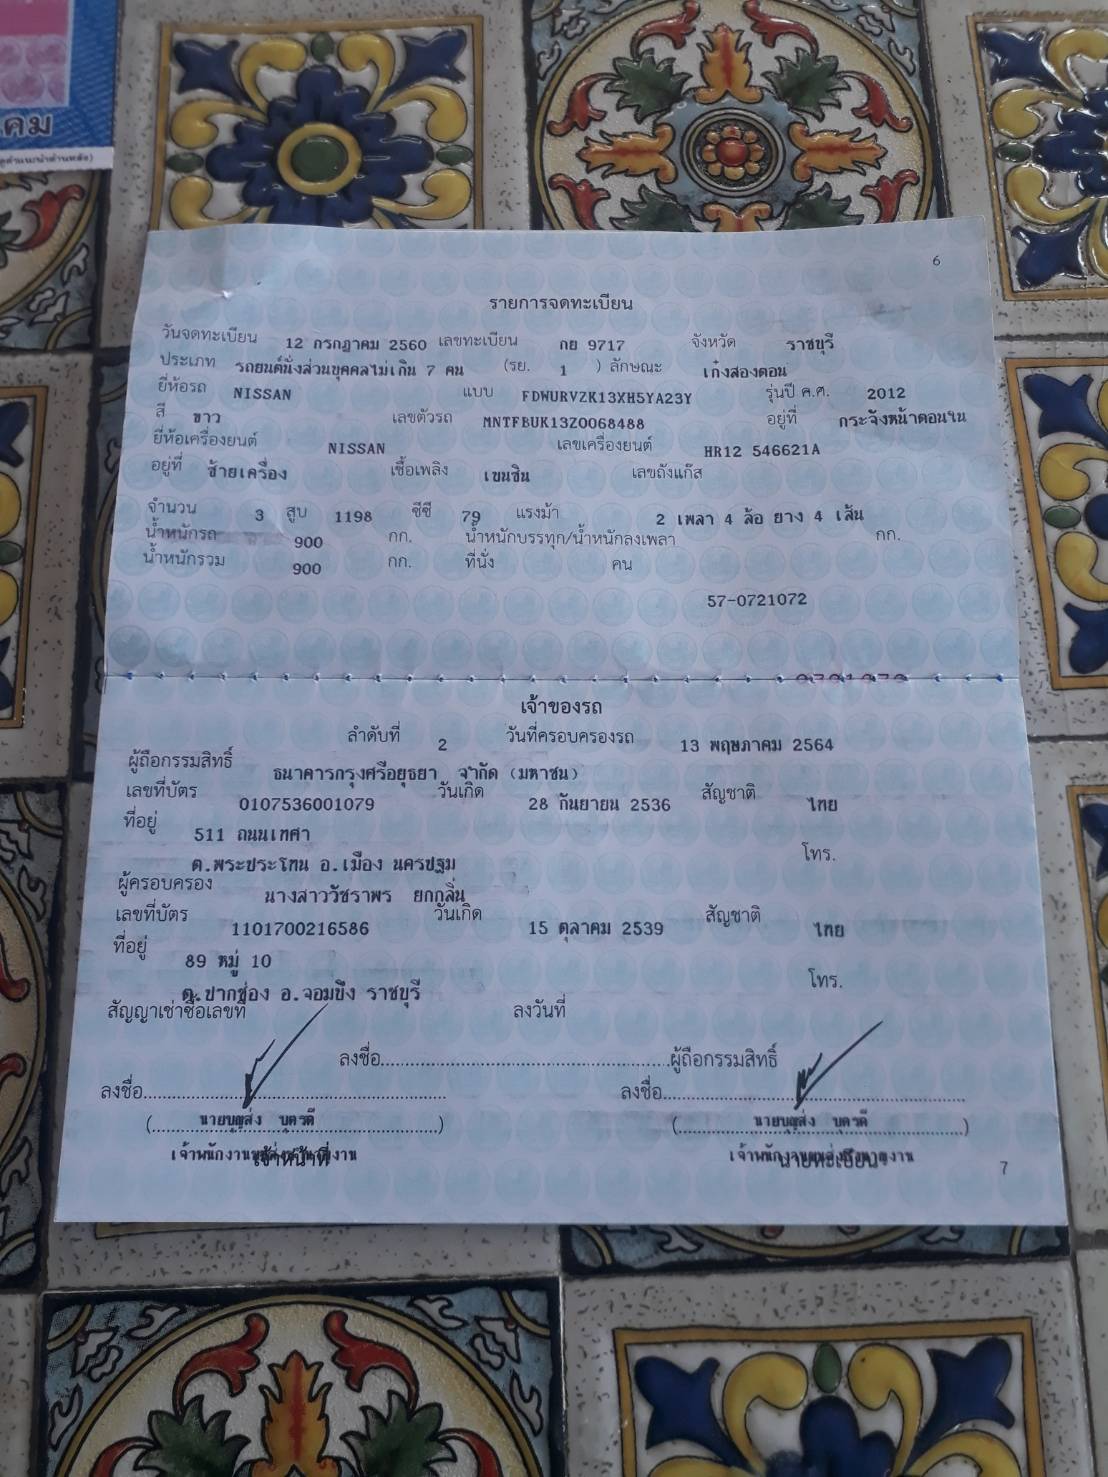 คม
6
รายการจดทะเบียน
วันจดทะเบียน 12 กรกฎาคม 2560 เลขทะเบียน กย 9717 จังหวัด ราชบุรี
ประเภท รถยนต์นั่งส่วนบุคคลไม่เกิน 7 คน (รย. 1 ) ลักษณะ เก๋งสองตอน
ยี่ห้อรถ NISSAN แบบ FDWURVZK13XH5YA23Y รุ่นปี ค.ศ. 2012
สี ขาว เลขตัวรถ MNTFBUK13Z0068488 อยู่ที่ กระจังหน้าตอนใน
ยี่ห้อเครื่องยนต์ NISSAN เลขเครื่องยนต์ HR12 546621A
อยู่ที่ ซ้ายเครื่อง เชื้อเพลิง เบนซิน เลขถังแก๊ส
จำนวน 3 สูบ 1198 ซีซี 79 แรงม้า 2 เพลา 4 ล้อ ยาง 4 เส้น
น้ำหนักรถ 900 กก. น้ำหนักบรรทุก/น้ำหนักลงเพลา กก.
น้ำหนักรวม 900 กก. ที่นั่ง คน
57-0721072
เจ้าของรถ
ลำดับที่ 2 วันที่ครอบครองรถ 13 พฤษภาคม 2564
ผู้ถือกรรมสิทธิ์ ธนาคารกรุงศรีอยุธยา จำกัด (มหาชน)
เลขที่บัตร 0107536001079 วันเกิด 28 กันยายน 2536 สัญชาติ ไทย
ที่อยู่ 511 ถนนเทศา
ต.พระประโทน อ.เมือง นครปฐม โทร.
ผู้ครอบครอง นางสาววัชราพร ยกกลิ่น
เลขที่บัตร 1101700216586 วันเกิด 15 ตุลาคม 2539 สัญชาติ ไทย
ที่อยู่ 89 หมู่ 10
ต.ปากช่อง อ.จอมบึง ราชบุรี โทร.
สัญญาเช่าซื้อเลขที่ ลงวันที่
ลงชื่อ........................................ผู้ถือกรรมสิทธิ์
ลงชื่อ........................................ ลงชื่อ........................................
(นายบุญส่ง บุตรดี) (นายบุญส่ง บุตรดี)
เจ้าพนักงานขนส่งชำนาญงาน เจ้าหน้าที่ เจ้าพนักงานขนส่งชำนาญงาน นายทะเบียน
7